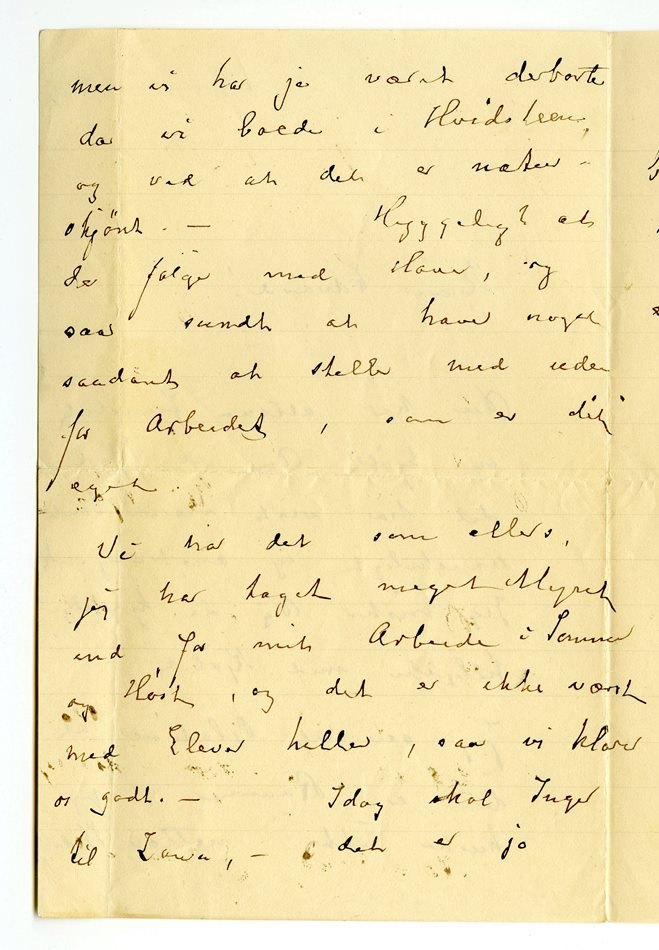 men vi har jo været derborte
da vi boede i Hvidsteen,
og ved at det er natur-
skjönt. — Hyggeligt at
der følger med Have, og
saa sundt at have noget
saadant at stelle med uden
for Arbeidet, som er dit
eget.
Vi har det som ellers,
jeg har taget meget
ind for mit Arbeide i Sommer
og Höst, og det er ikke værst
med Elever heller, saa vi klarer
os godt. — Idag skal Inger
til — det er jo